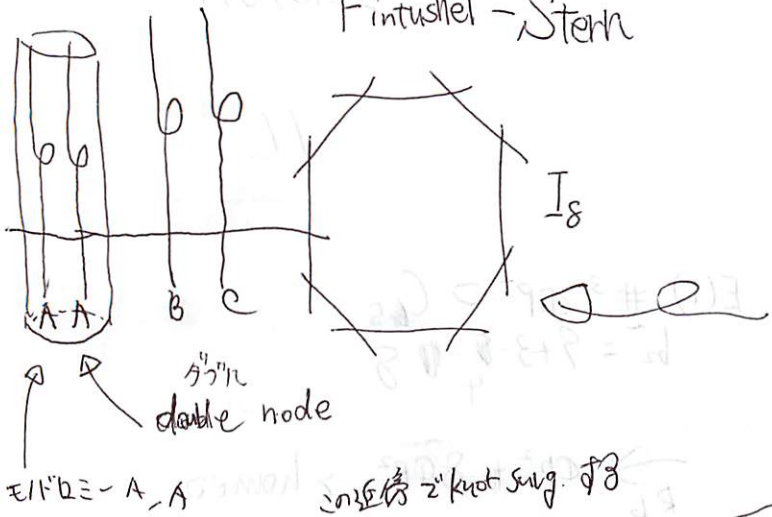 Fintushel - Stern
I₈
A A B C
ダブル
double node
モノドロミー A, A
この近傍で knot surg. する